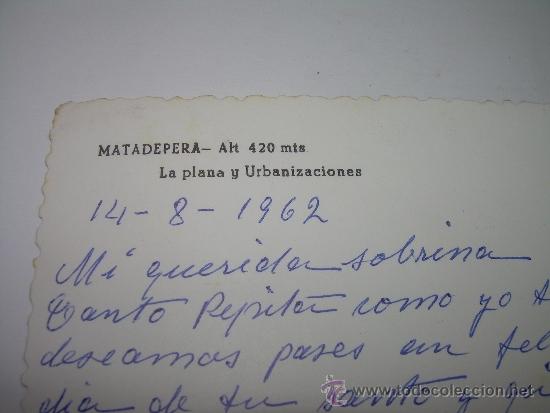 MATADEPERA– Alt 420 mts
La plana y Urbanizaciones
14-8-1962
Mi querida sobrina
Tanto Pepita como yo t
deseamos pases un fel
dia de tu santo y
todocoleccion.net